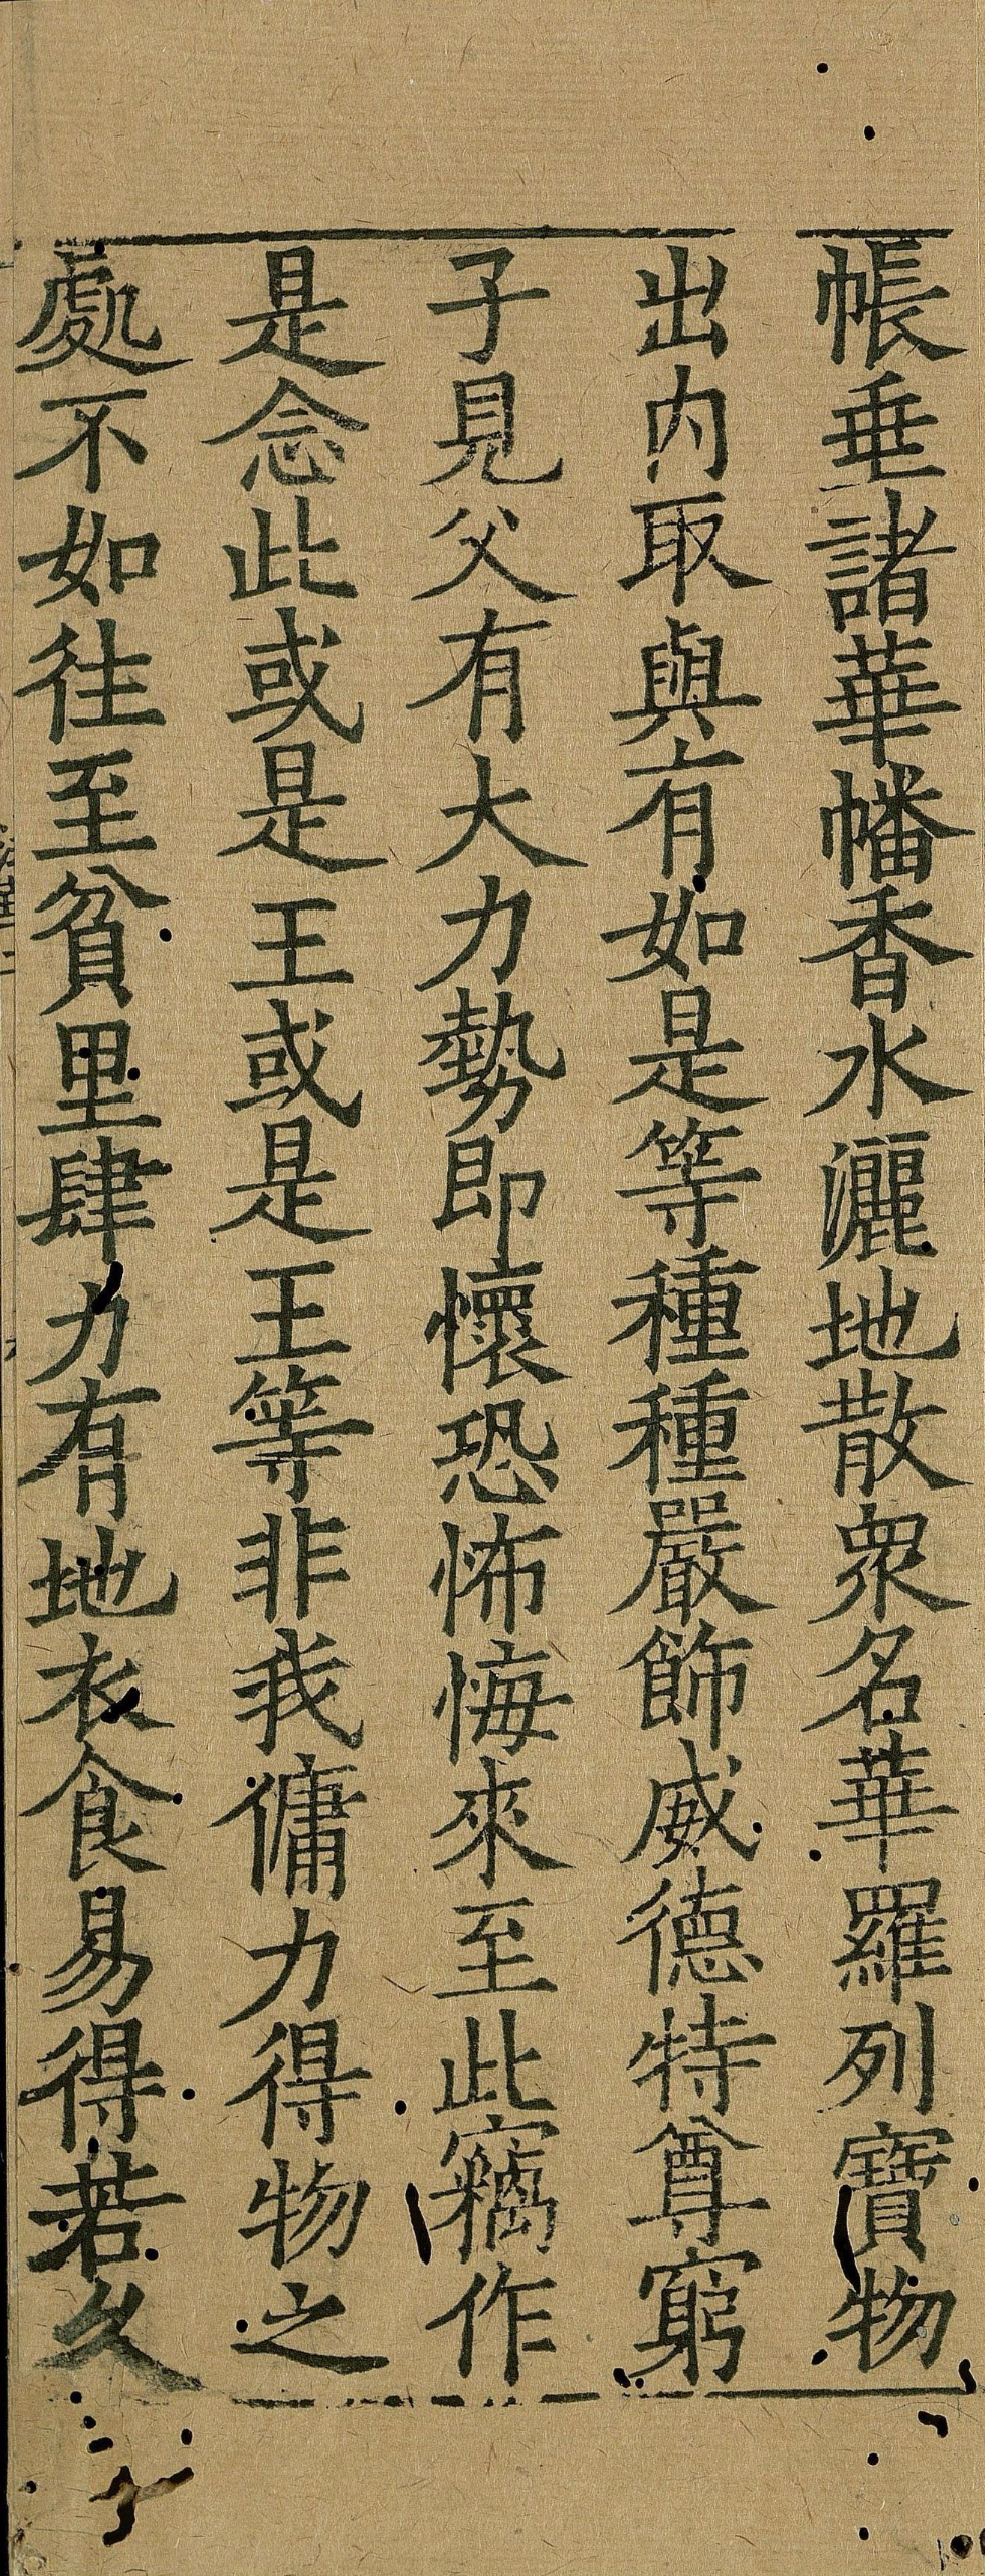 帳垂諸華幡香水灑地散衆名華羅列寶物
出内取與有如是等種種嚴飾威德特尊窮
子見父有大力勢即懷恐怖悔來至此竊作
是念此或是王或是王等非我傭力得物之
處不如往至貧里肆力有地衣食易得若久